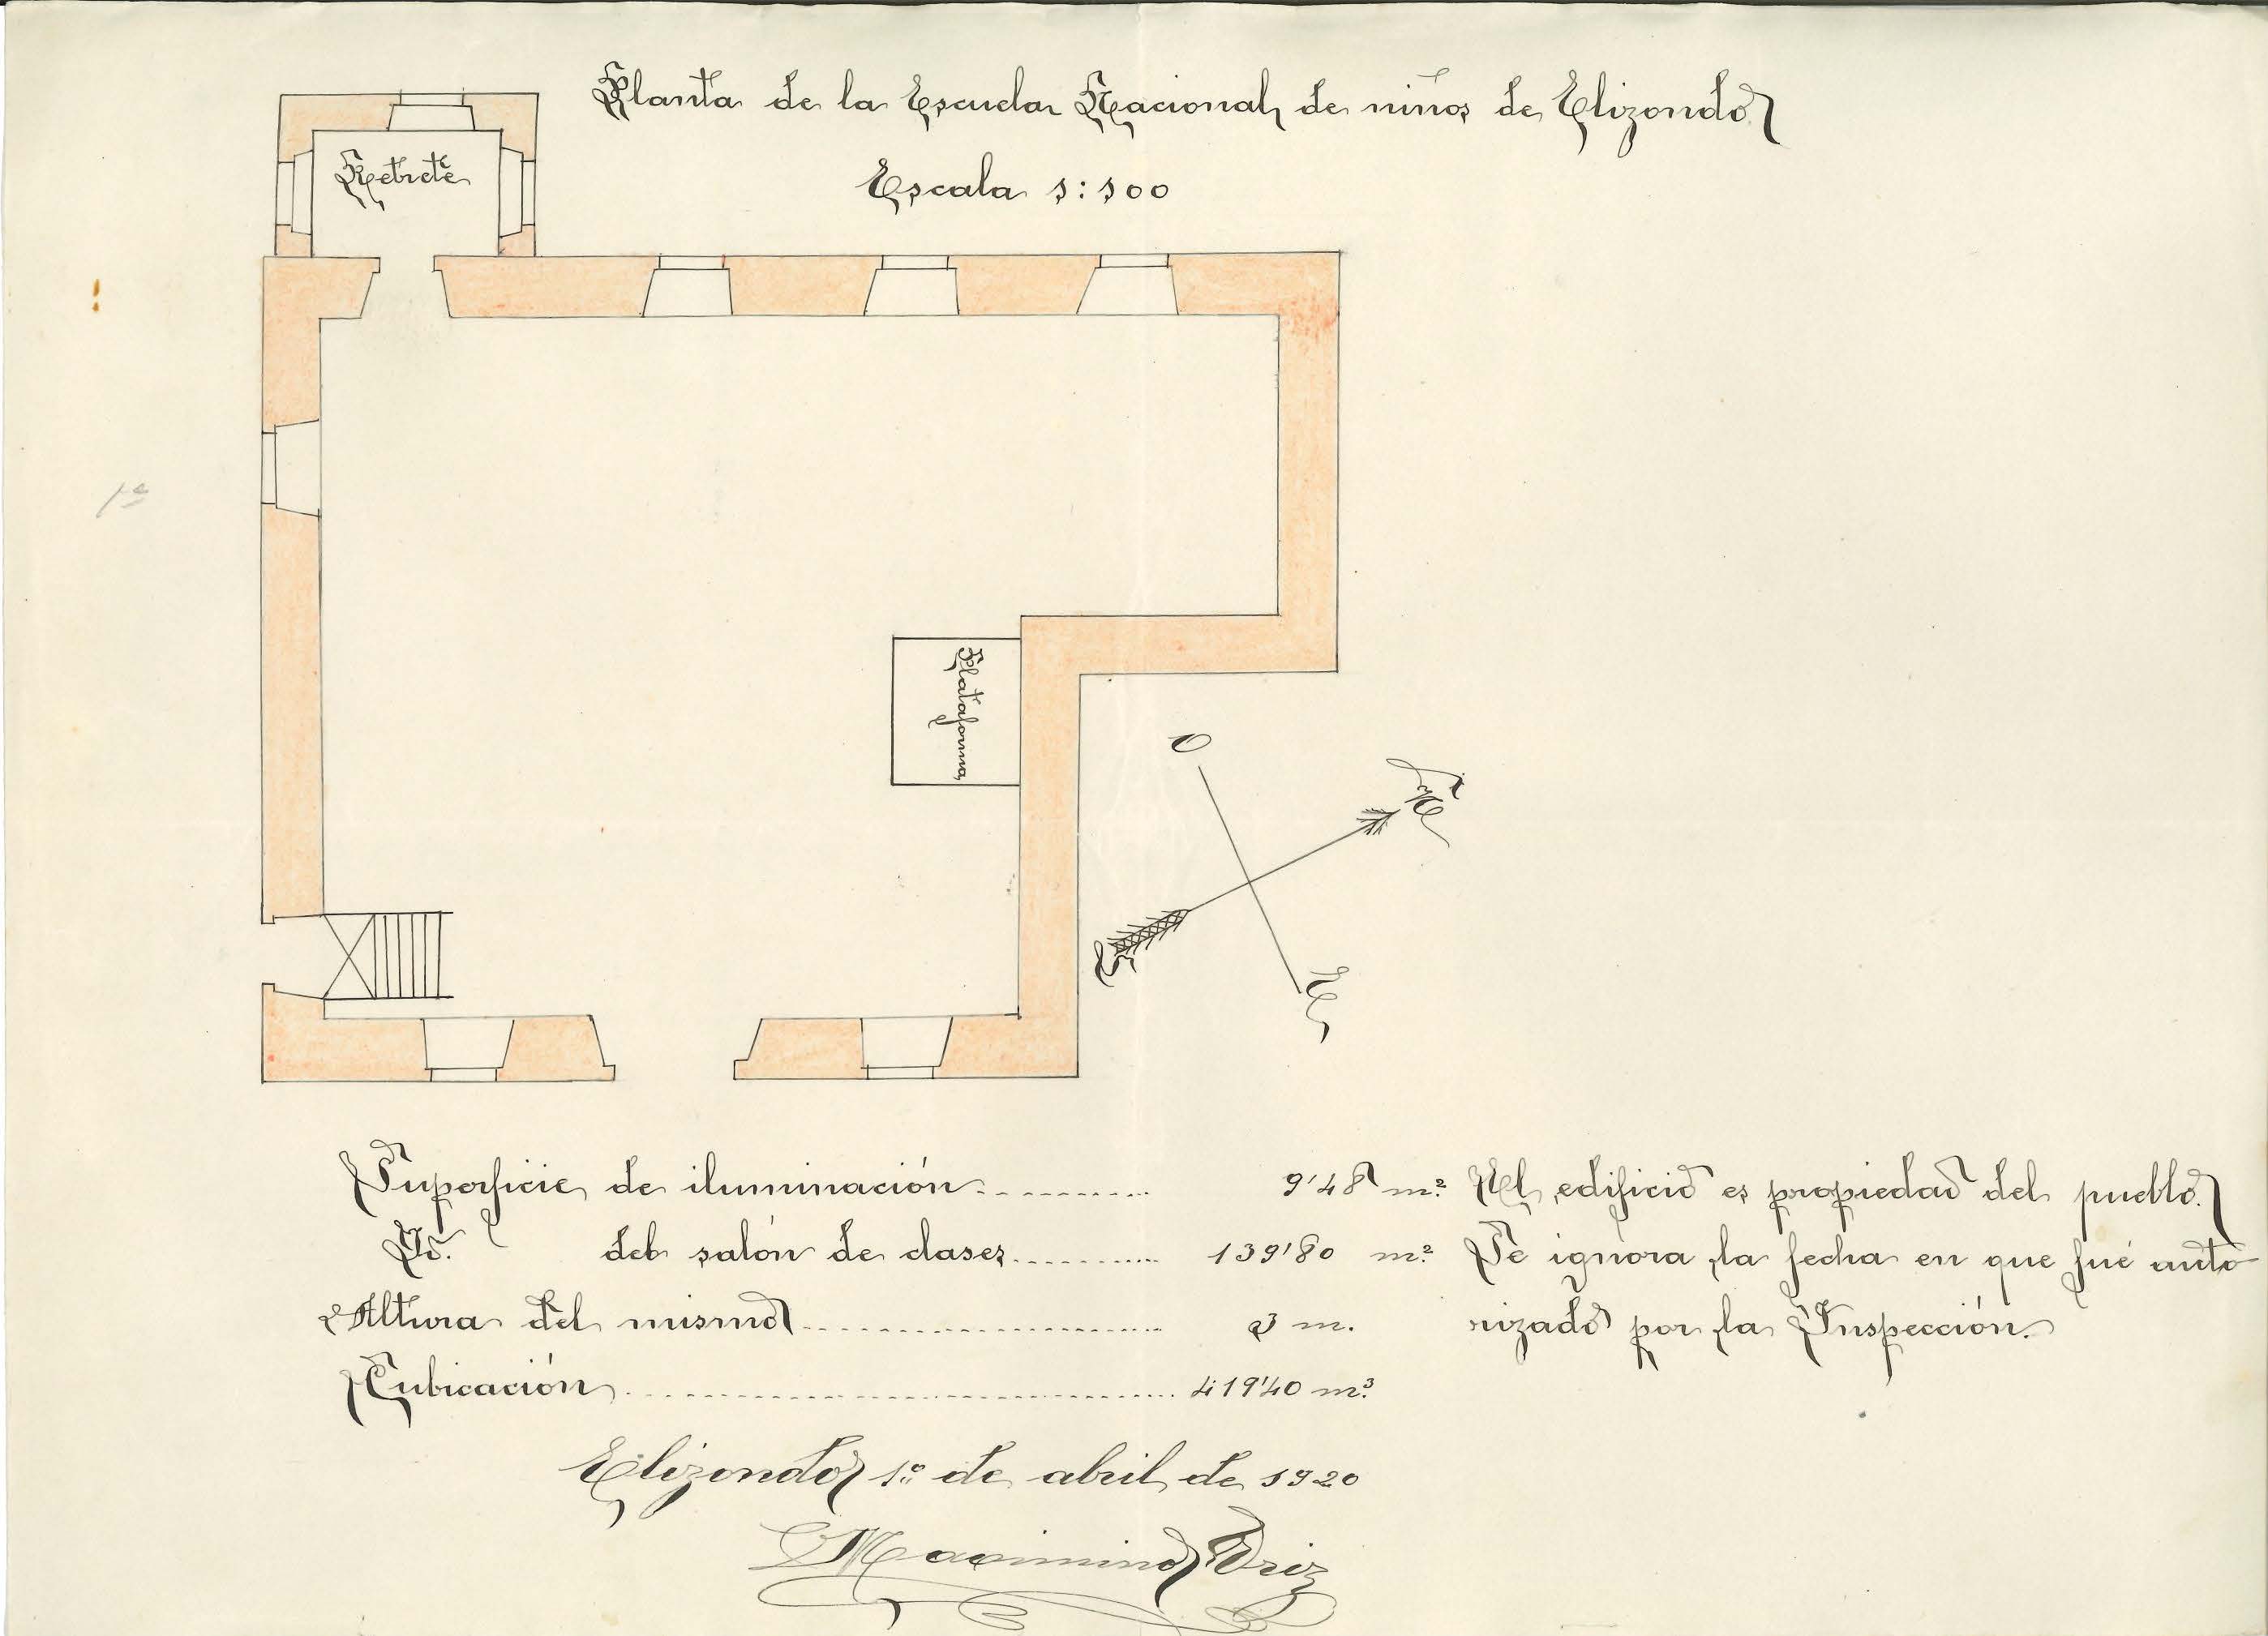 Planta de la Escuela Nacional de niños de Elizondo
Escala 1:100
Retrete
1ª
Plataforma
O
N
S
E
Superficie de iluminación 9'48 m².
Id. del salón de clases 139'80 m².
Altura del mismo 3 m.
Cubicación 419'40 m³.
El edificio es propiedad del pueblo.
Se ignora la fecha en que fué auto
rizado por la Inspección.
Elizondo 1º de abril de 1920
Maximino Eriz